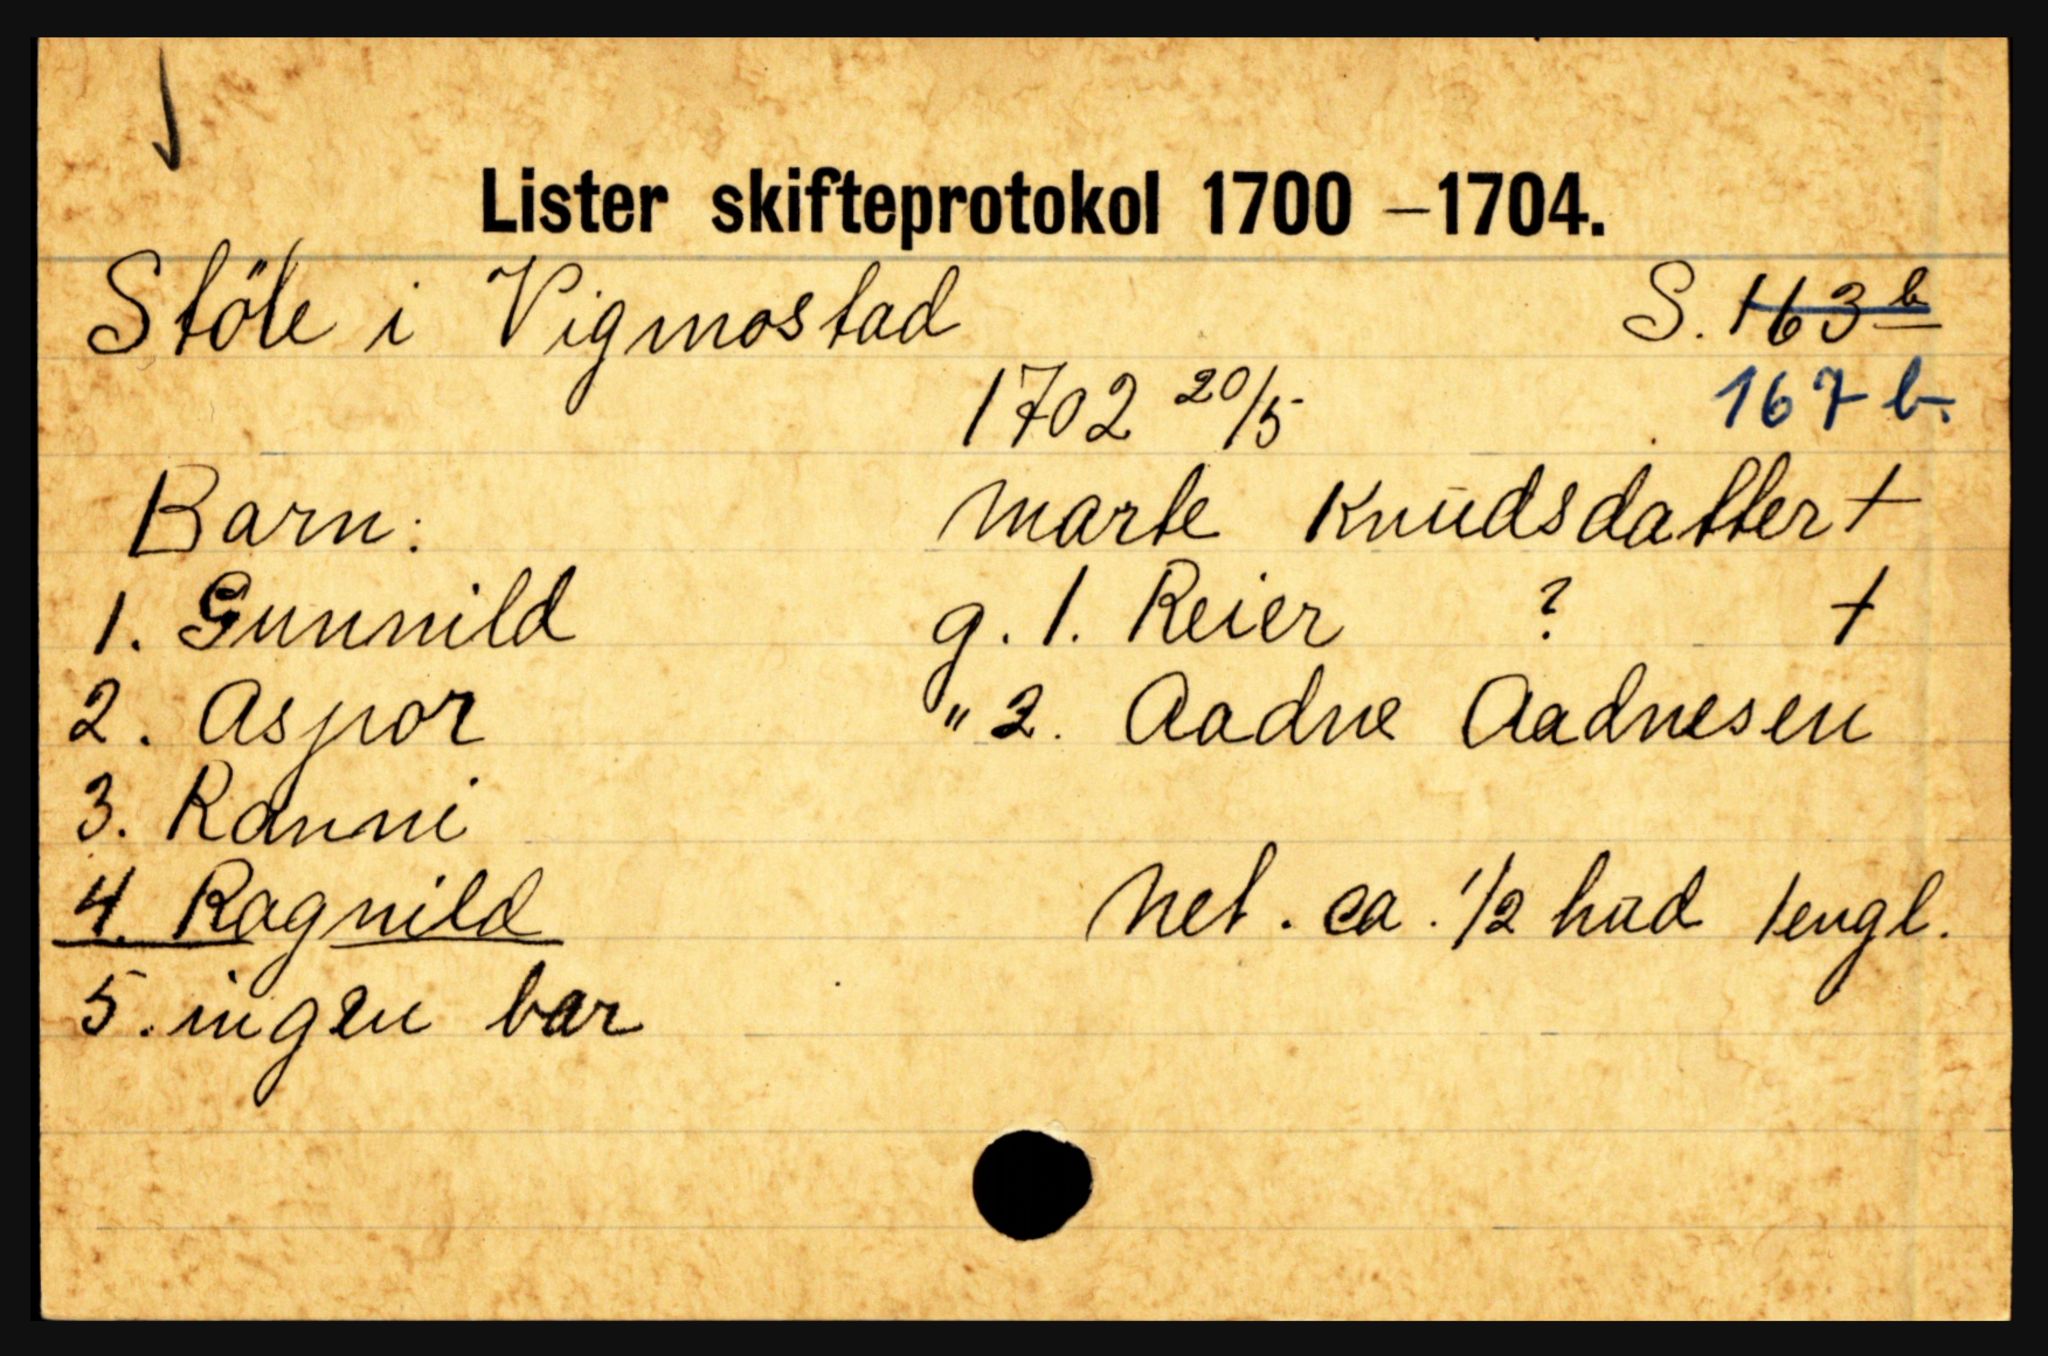 Lister skifteprotokol 1700 – 1704.
Stöle i Vigmostad S. 163 b
1702 20/5 167 b.
Barn: Marte Knudsdatter +
1. Gunnild g. 1. Reier ? +
2. Aspor " 2. Aadne Aadnesen
3. Ranni
4. Ragnild Net. ca. 1/2 hud 1 engl.
5. ingen bar